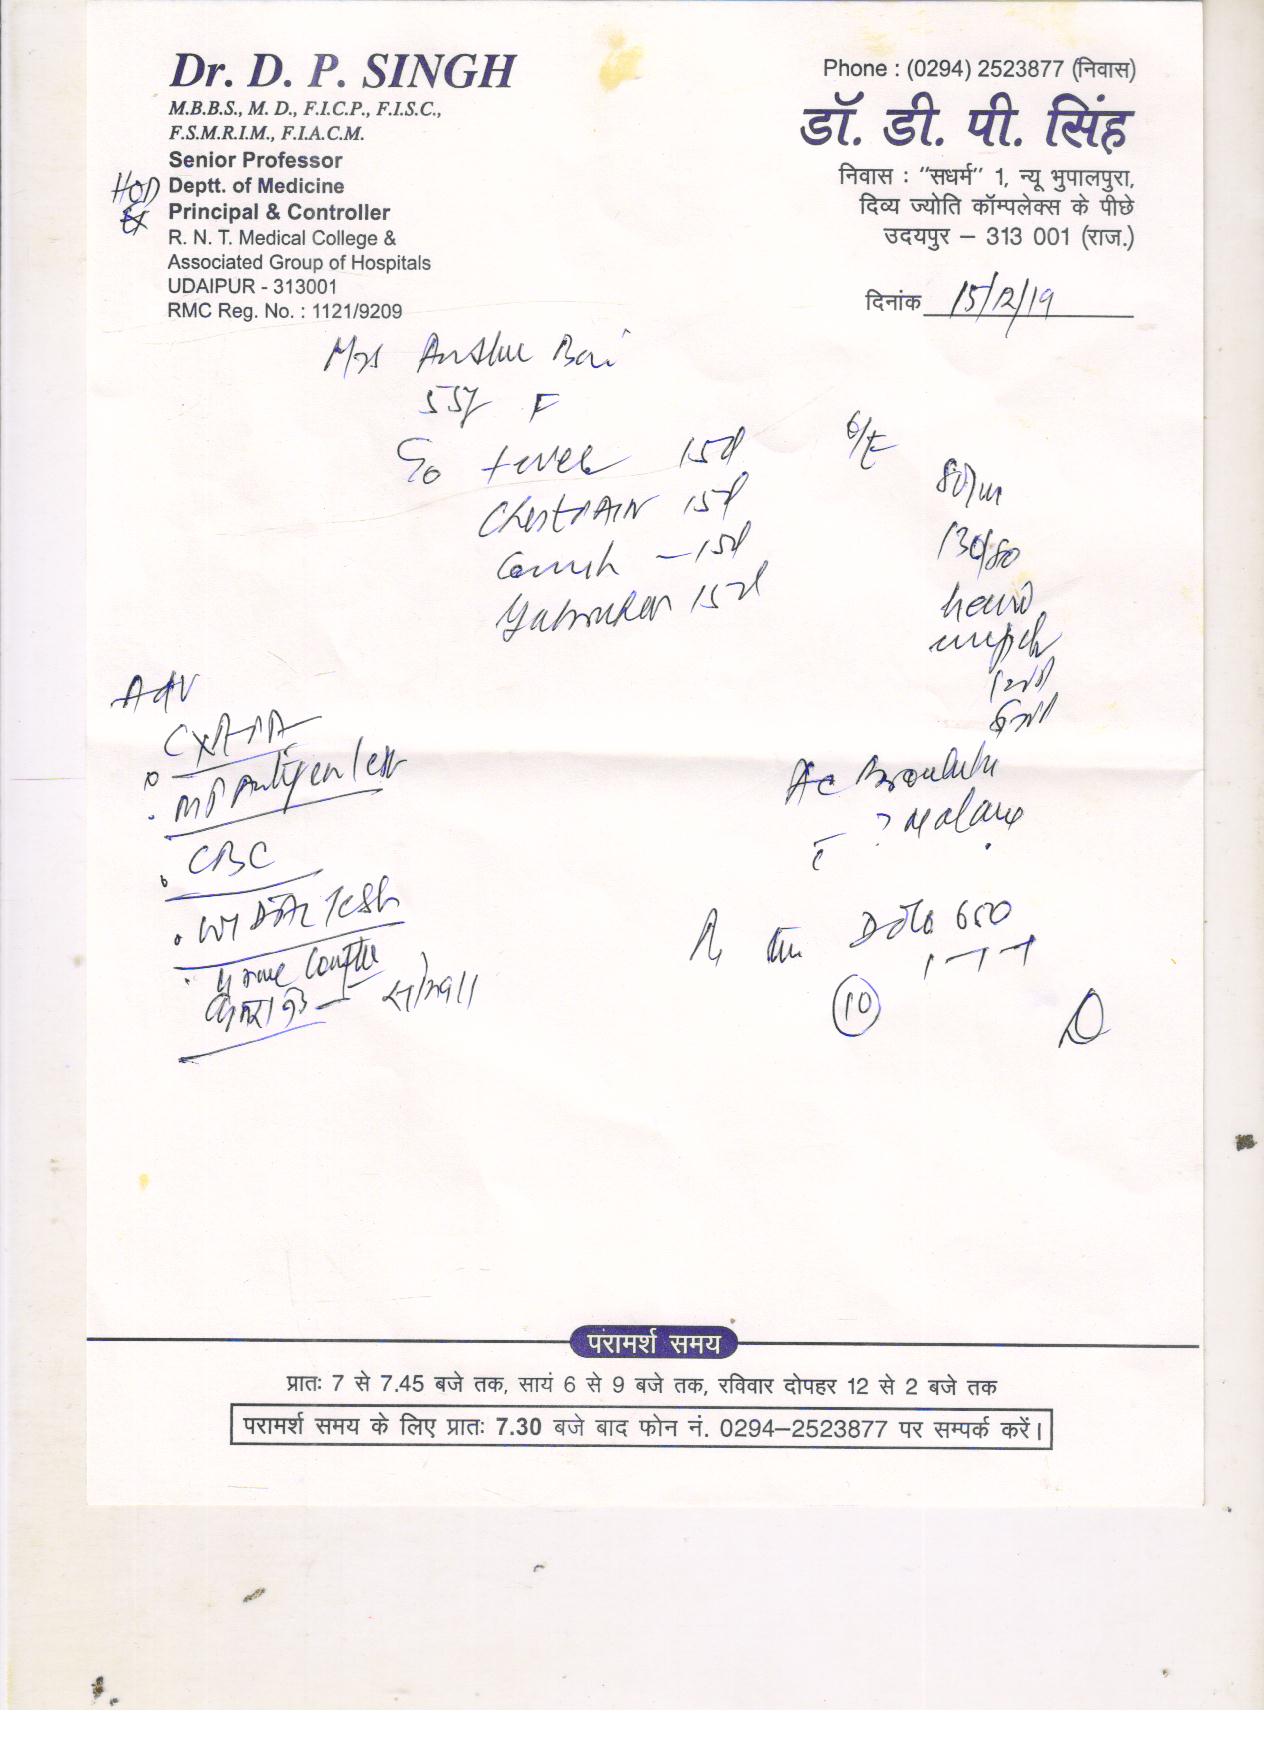 Dr. D. P. SINGH
M.B.B.S., M. D., F.I.C.P., F.I.S.C.,
F.S.M.R.I.M., F.I.A.C.M.
Senior Professor
HOD Deptt. of Medicine
& Principal & Controller
R. N. T. Medical College &
Associated Group of Hospitals
UDAIPUR - 313001
RMC Reg. No. : 1121/9209
Phone : (0294) 2523877 (निवास)
डॉ. डी. पी. सिंह
निवास : "सधर्म" 1, न्यू भुपालपुरा,
दिव्य ज्योति कॉम्पलेक्स के पीछे
उदयपुर – 313 001 (राज.)
दिनांक 15/12/19
Mrs Bai
55y F
C/o fever 15d
Chest PAIN 15d
Cough – 15d
15d
O/E
80/m
130/80
Adv
MP Antigen Test
CBC
WIDAL Test
Urine Complete
Ac
? Malaria
Dolo 650
1-1-1
10
परामर्श समय
प्रातः 7 से 7.45 बजे तक, सायं 6 से 9 बजे तक, रविवार दोपहर 12 से 2 बजे तक
परामर्श समय के लिए प्रातः 7.30 बजे बाद फोन नं. 0294–2523877 पर सम्पर्क करें।